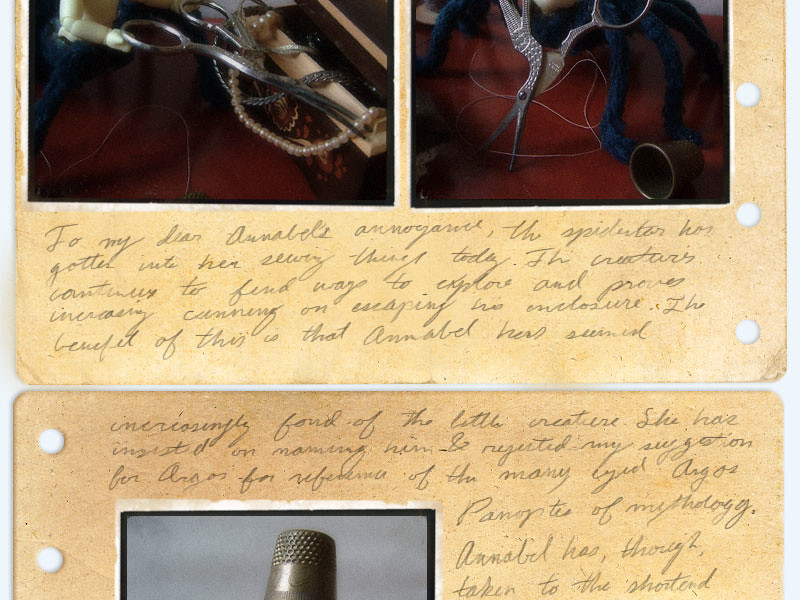 To my dear Annabel's annoyance, the spidertar has
gotten into her sewing things today. The creatures
continues to find ways to explore and proves
increasing cunning on escaping his enclosure. The
benefit of this is that Annabel has seemed
increasingly fond of the little creature. She has
insist'd on naming him & rejected my suggestion
for Argos for reference of the many eyed Argos
Panoptes of mythology.
Annabel has, though,
taken to the shortend